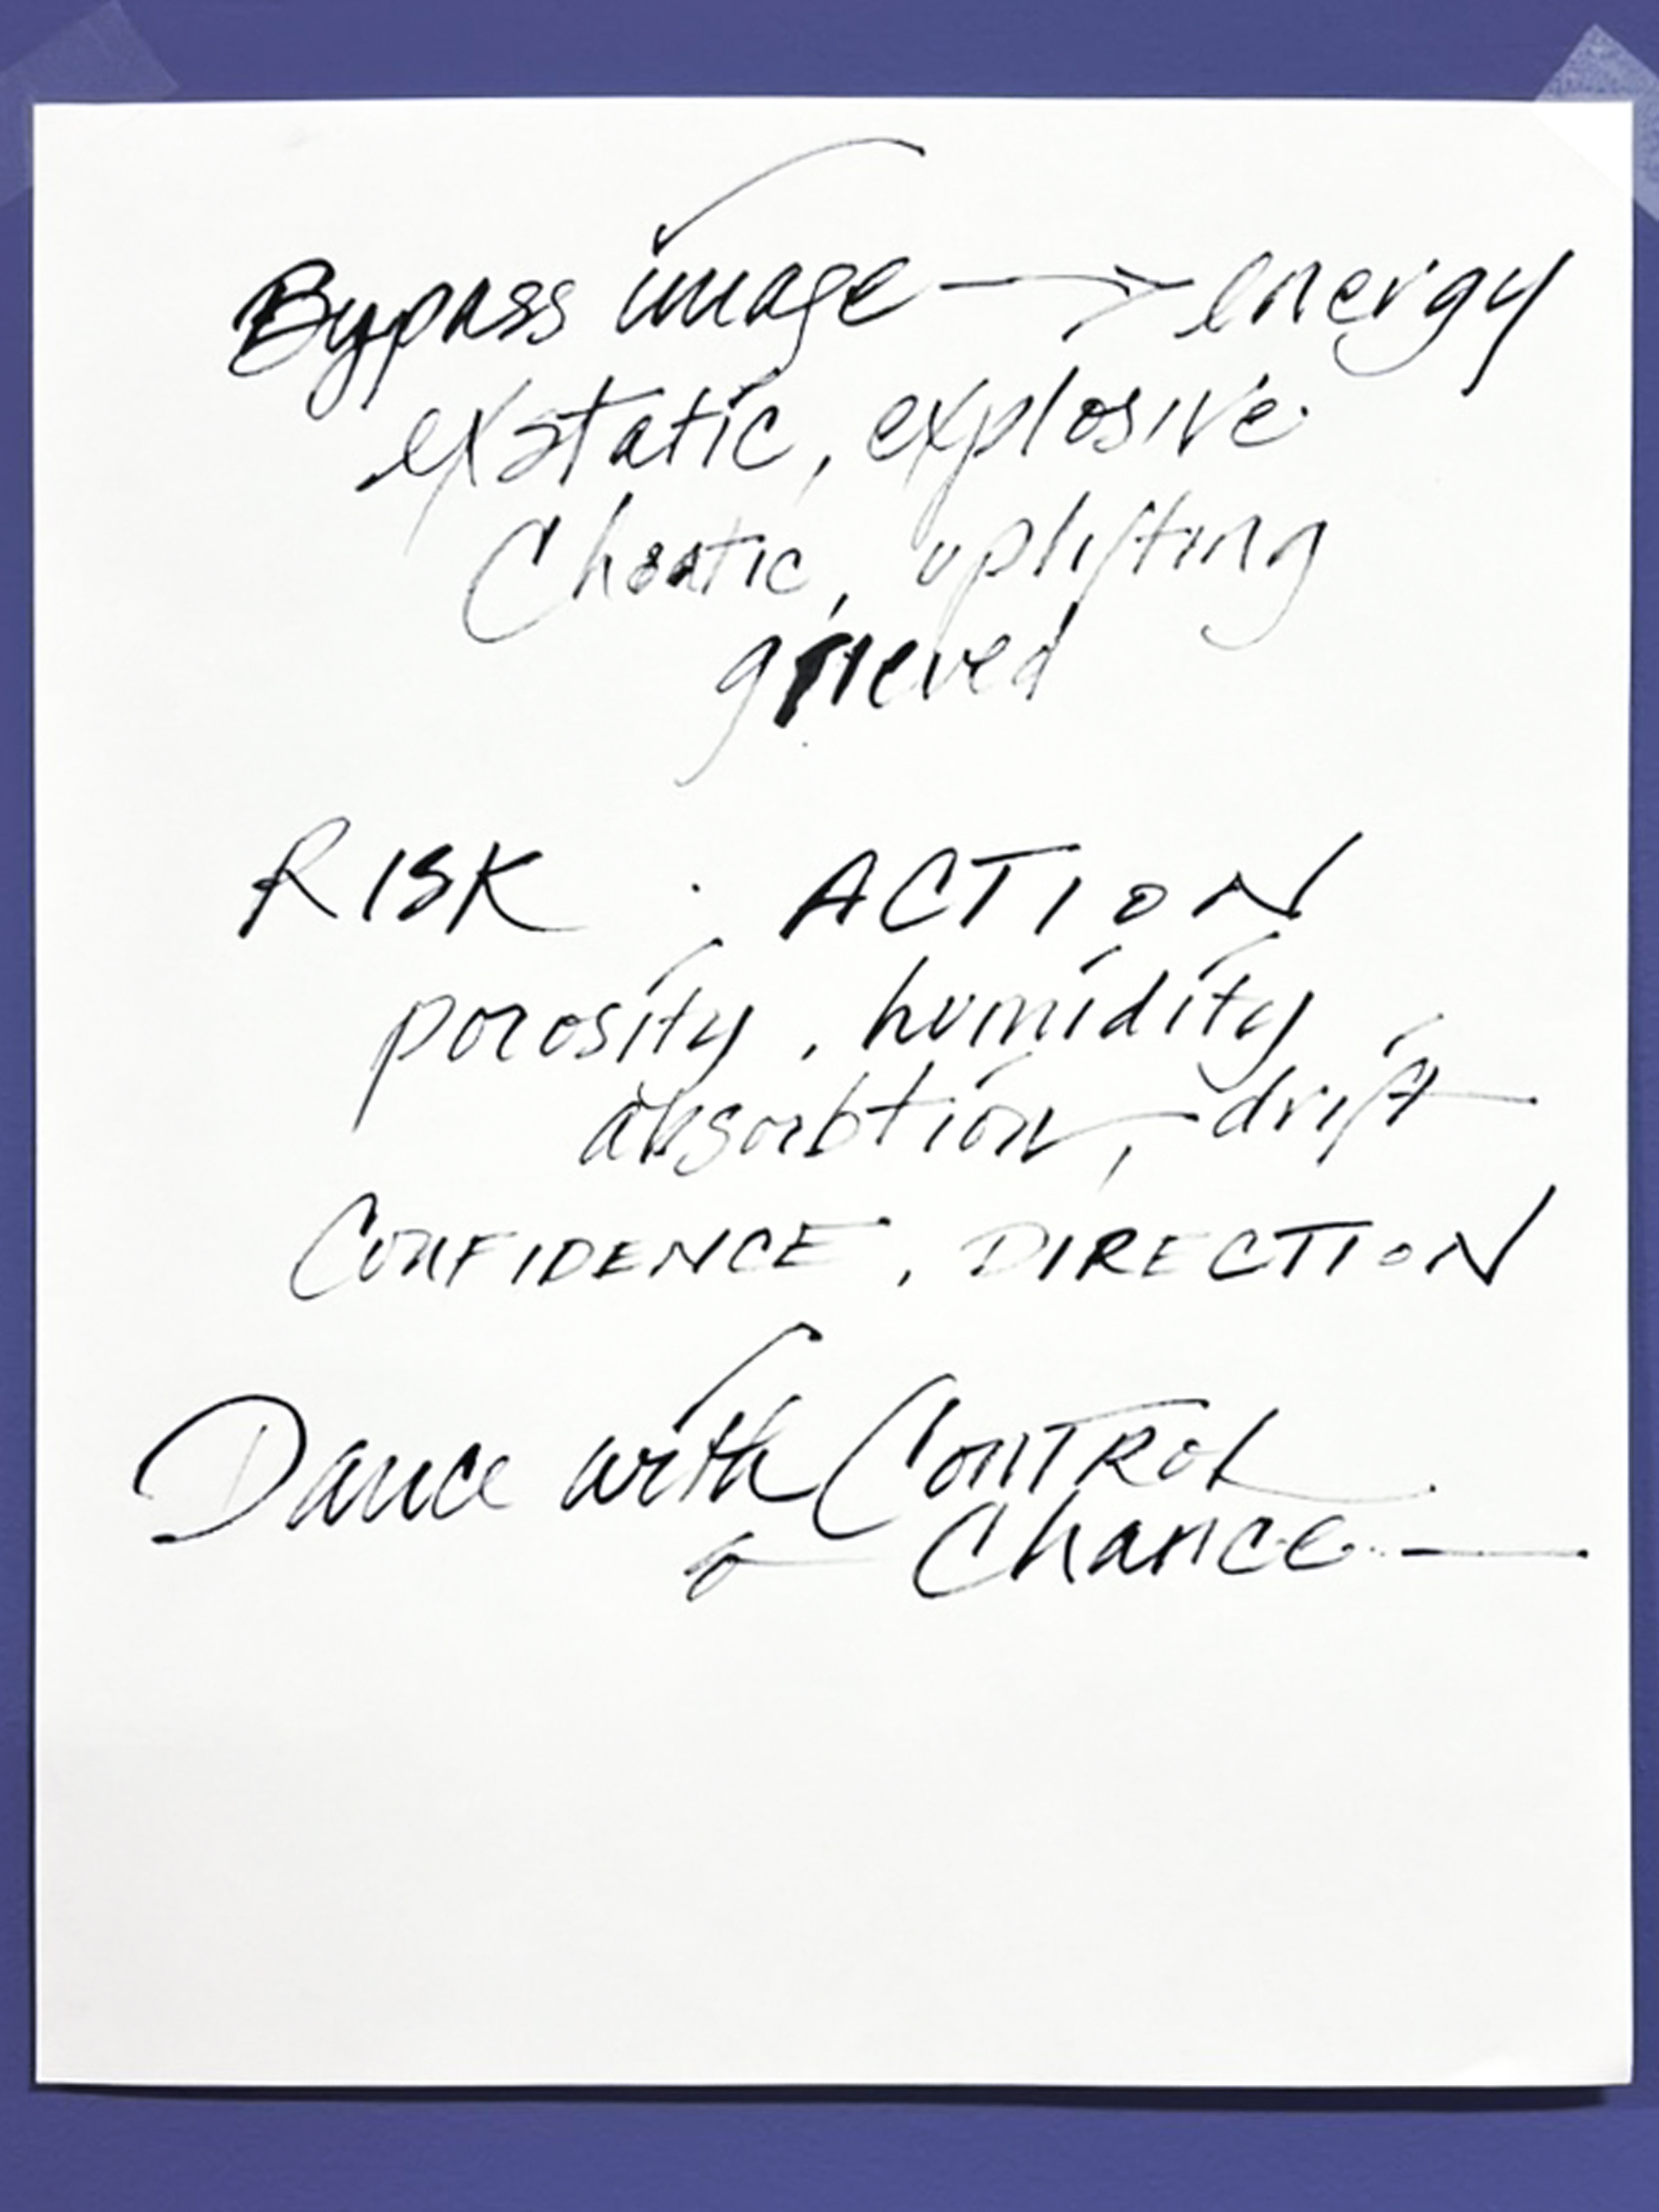 Bypass image → energy
exstatic, explosive
Choatic, uplifting
grieved
RISK . ACTION
porosity, humidity
absorbtion, drift
CONFIDENCE, DIRECTION
Dance with CONTROL
& Chance —